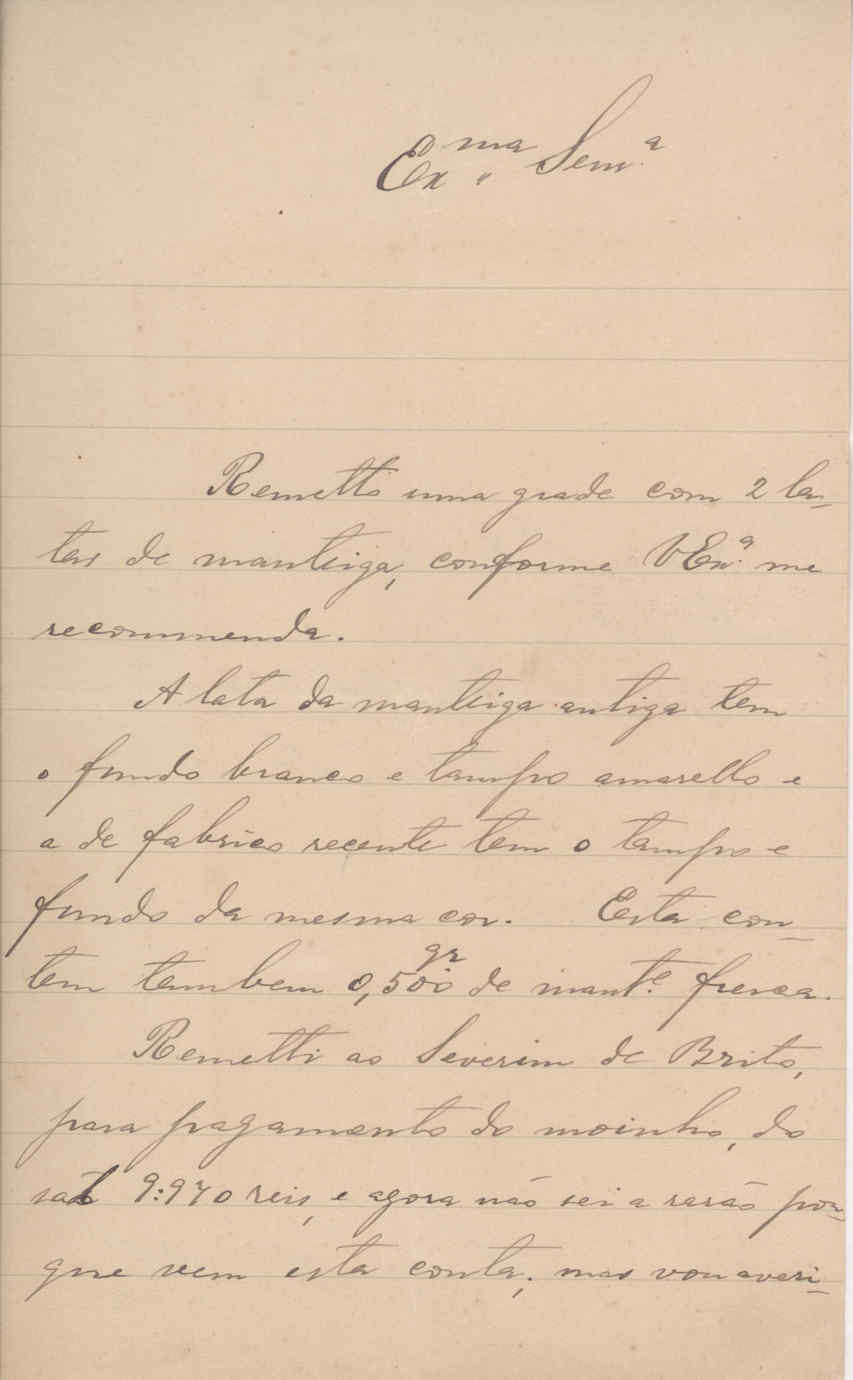 Ex.ma Senr.a
Remetto uma grade com 2 la-
tas de manteiga, conforme V Ex.a me
recommenda.
A lata da manteiga antiga tem
o fundo branco e tampo amarello e
a de fabrico recente tem o tampo e
fundo da mesma cor. Esta con-
tem tambem 0,500 gr de mant.e fresca.
Remetti ao Severim de Brito,
para pagamento do moinho, do
sal 9:970 reis, e agora não sei a rasão por-
que vem esta conta; mas vou averi-